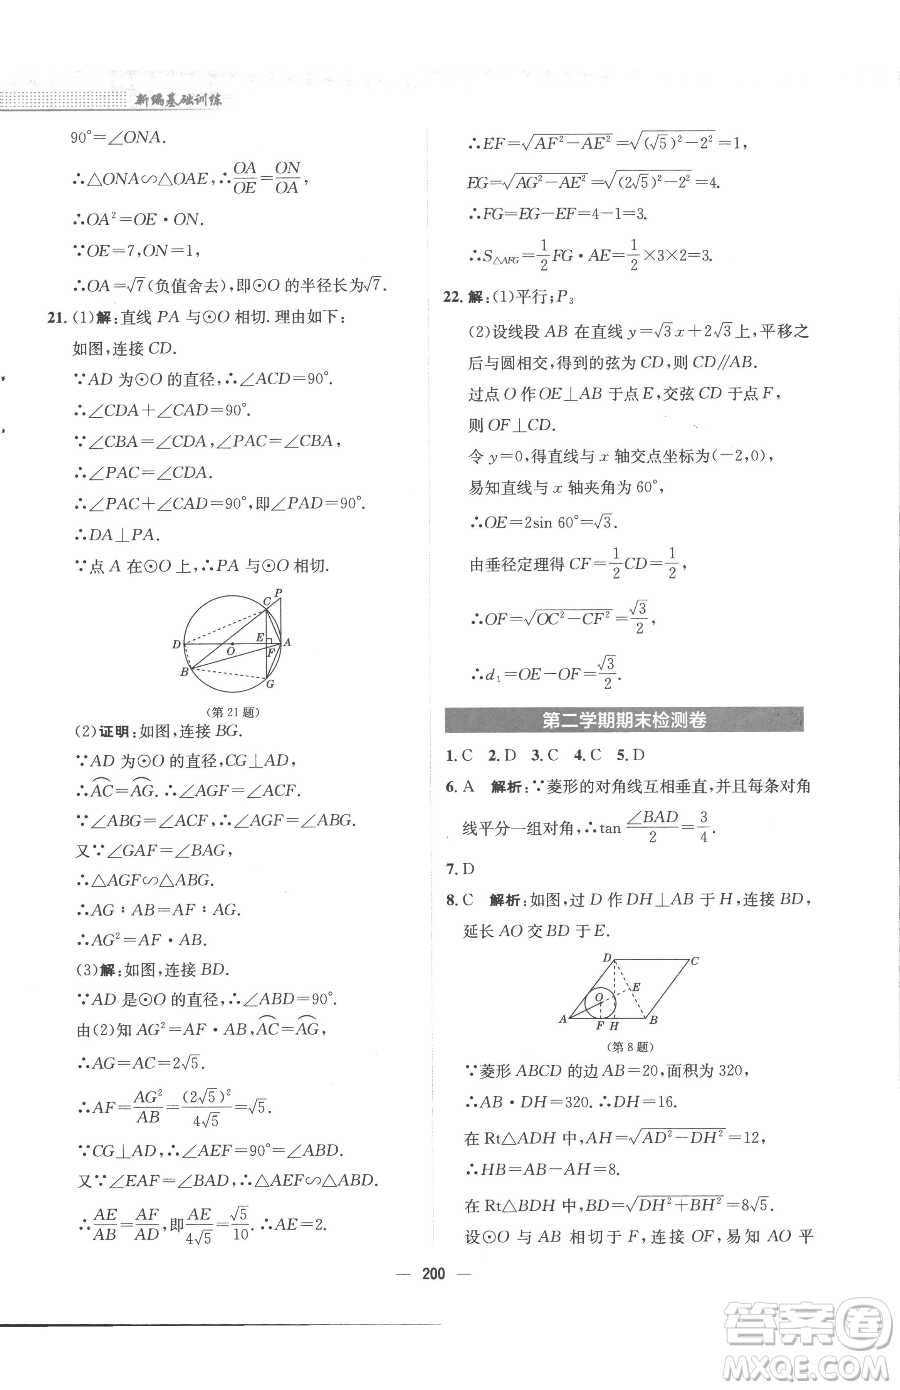 新编基础训练
90°=∠ONA.
∴△ONA∽△OAE,∴OA/OE=ON/OA,
∴OA²=OE·ON.
∵OE=7,ON=1,
∴OA=√7(负值舍去),即⊙O的半径长为√7.
21. (1)解:直线 PA 与⊙O相切.理由如下:
如图,连接CD.
∵AD 为⊙O的直径,∴∠ACD=90°.
∴∠CDA+∠CAD=90°.
∵∠CBA=∠CDA,∠PAC=∠CBA,
∴∠PAC=∠CDA.
∴∠PAC+∠CAD=90°,即∠PAD=90°.
∴DA⊥PA.
∵点A在⊙O上,∴PA与⊙O相切.
P
C
E
D
O
F
A
B
G
(第21题)
(2)证明:如图,连接BG.
∵AD为⊙O的直径,CG⊥AD,
∴⌒AC=⌒AG.∴∠AGF=∠ACF.
∵∠ABG=∠ACF,∴∠AGF=∠ABG.
又∵∠GAF=∠BAG,
∴△AGF∽△ABG.
∴AG∶AB=AF∶AG.
∴AG²=AF·AB.
(3)解:如图,连接BD.
∵AD是⊙O的直径,∴∠ABD=90°.
由(2)知AG²=AF·AB,⌒AC=⌒AG,
∴AG=AC=2√5.
∴AF=AG²/AB=(2√5)²/4√5=√5.
∵CG⊥AD,∴∠AEF=90°=∠ABD.
又∵∠EAF=∠BAD,∴△AEF∽△ABD.
∴AE/AB=AF/AD,即AE/4√5=√5/10.∴AE=2.
∴EF=√(AF²−AE²)=√((√5)²−2²)=1,
EG=√(AG²−AE²)=√((2√5)²−2²)=4.
∴FG=EG−EF=4−1=3.
∴S△AFG=1/2FG·AE=1/2×3×2=3.
22. 解:(1)平行;P₃
(2)设线段 AB 在直线 y=√3x+2√3上,平移之
后与圆相交,得到的弦为CD,则CD∥AB.
过点O作OE⊥AB于点E,交弦CD于点F,
则OF⊥CD.
令y=0,得直线与x轴交点坐标为(−2,0),
易知直线与x轴夹角为60°,
∴OE=2sin 60°=√3.
由垂径定理得CF=1/2CD=1/2,
∴OF=√(OC²−CF²)=√3/2,
∴d₁=OE−OF=√3/2.
第二学期期末检测卷
1. C 2. D 3. C 4. C 5. D
6. A 解析:∵菱形的对角线互相垂直,并且每条对角
线平分一组对角,∴tan∠BAD/2=3/4.
7. D
8. C 解析:如图,过D作DH⊥AB于H,连接BD,
延长AO交BD于E.
D
C
O
E
A
F
H
B
(第8题)
∵菱形ABCD的边AB=20,面积为320,
∴AB·DH=320.∴DH=16.
在Rt△ADH中,AH=√(AD²−DH²)=12,
∴HB=AB−AH=8.
在Rt△BDH中,BD=√(DH²+BH²)=8√5.
设⊙O与AB相切于F,连接OF,易知AO平
— 200 —
答案卷
MXQE.COM